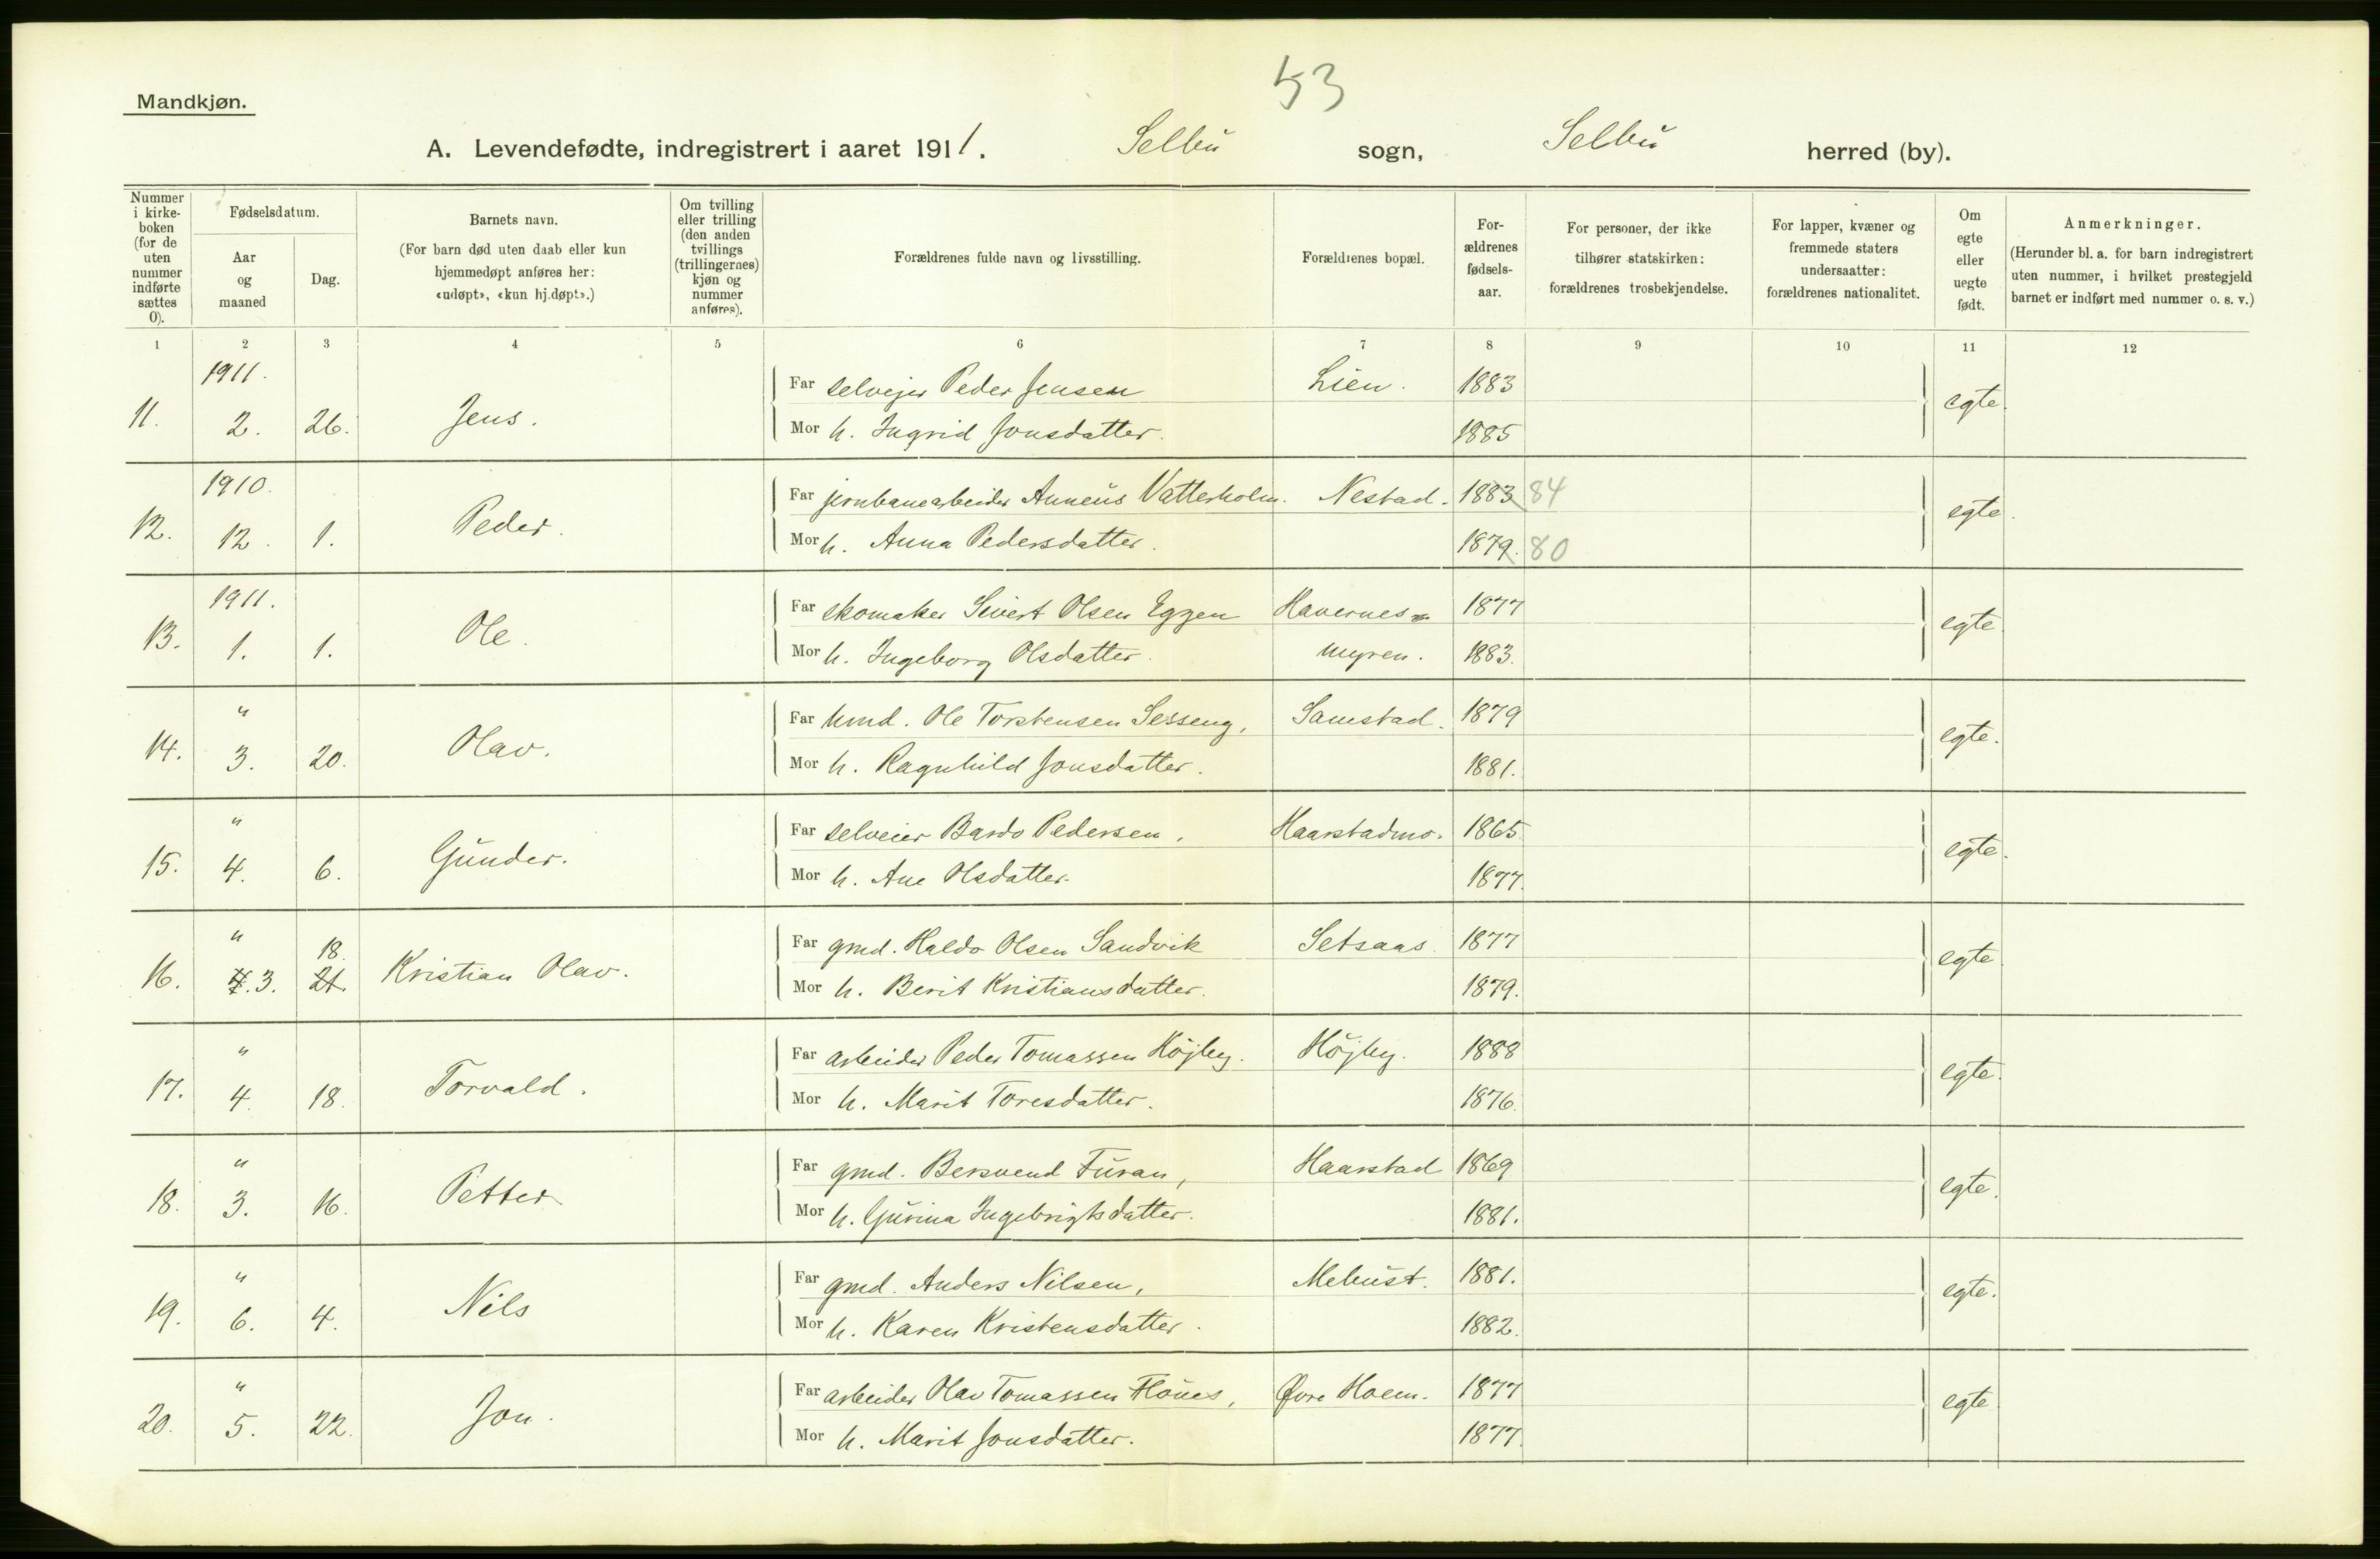 53
Mandkjøn.
A. Levendefødte, indregistrert i aaret 1911. Selbu sogn, Selbu herred (by).
Nummer i kirkeboken (for de uten nummer indførte sættes 0).
Fødselsdatum.
Aar og maaned
Dag.
Barnets navn.
(For barn død uten daab eller kun hjemmedøpt anføres her: «udøpt», «kun hj.døpt».)
Om tvilling eller trilling (den anden tvillings (trillingernes) kjøn og nummer anføres).
Forældrenes fulde navn og livsstilling.
Forældrenes bopæl.
Forældrenes fødselsaar.
For personer, der ikke tilhører statskirken: forældrenes trosbekjendelse.
For lapper, kvæner og fremmede staters undersaatter: forældrenes nationalitet.
Om egte eller uegte født.
Anmerkninger.
(Herunder bl. a. for barn indregistrert uten nummer, i hvilket prestegjeld barnet er indført med nummer o. s. v.)
1 2 3 4 5 6 7 8 9 10 11 12
1911.
Far selvejer Peder Jensen Lien. 1883
11. 2. 26. Jens. egte.
Mor h. Ingrid Jonsdatter. 1885
1910.
Far jernbanearbeider Anneus Vatterholm. Nestad. 1883 84
12. 12. 1. Peder. egte.
Mor h. Anna Pedersdatter. 1879. 80
1911.
Far skomaker Sivert Olsen Eggen Havernes- 1877
13. 1. 1. Ole. egte.
Mor h. Ingeborg Olsdatter. myren. 1883.
"
Far hmd. Ole Torstensen Sesseng, Samstad. 1879
14. 3. 20. Olav. egte.
Mor h. Ragnhild Jonsdatter. 1881.
"
Far selveier Bardo Pedersen, Haarstadmo. 1865.
15. 4. 6. Gunder. egte.
Mor h. Ane Olsdatter. 1877.
"
18.
Far gmd. Haldo Olsen Sandvik Setsaas 1877
16. 4. 3. 21. Kristian Olav. egte.
Mor h. Berit Kristiansdatter. 1879.
"
Far arbeider Peder Tomassen Højby. Højby. 1888
17. 4. 18. Torvald. egte.
Mor h. Marit Toresdatter. 1876.
"
Far gmd. Bersvend Furan, Haarstad 1869
18. 3. 16. Petter egte.
Mor h. Gurina Ingebrigtsdatter. 1881.
"
Far gmd. Anders Nilsen, Mebust. 1881.
19. 6. 4. Nils egte.
Mor h. Karen Kristensdatter. 1882.
"
Far arbeider Olav Tomassen Flønes, Øvre Hoem. 1877
20. 5. 22. Jon. egte
Mor h. Marit Jonsdatter. 1877.